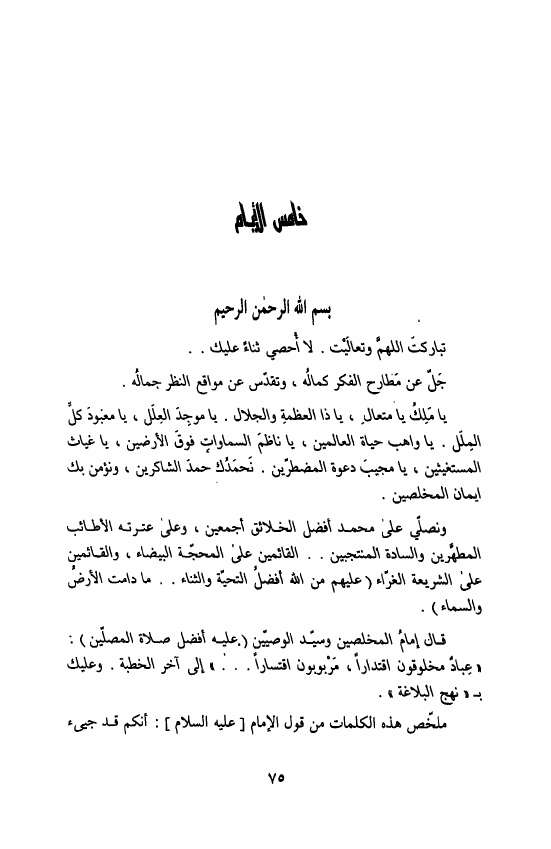 خامس الأيام
بسم الله الرحمٰن الرحيم
تباركتَ اللهمَّ وتعالَيْت . لا أُحصي ثناءً عليك . .
جَلّ عن مَطارح الفكر كمالُه ، وتقدّس عن مواقع النظر جمالُه .
يا مَلِكُ يا متعالِ ، يا ذا العظمةِ والجلال . يا موجِدَ العِلَل ، يا معبودَ كلِّ
المِلَل . يا واهب حياة العالمين ، يا ناظمَ السماواتِ فوقَ الأرضين ، يا غياث
المستغيثين ، يا مجيبَ دعوة المضطرّين . نَحمَدُك حمدَ الشاكرين ، ونؤمن بك
ايمان المخلصين .
ونصلّي علىٰ محمـد أفضل الخـلائق أجمعين ، وعلىٰ عتـرتـه الأطـائب
المطهَّرين والسادة المنتجبين . . القائمين علىٰ المحجّـة البيضاء ، والقـائمين
علىٰ الشريعة الغرّاء ( عليهم من الله أفضلُ التحيّة والثناء . . ما دامت الأرضُ
والسماء ) .
قـال إمامُ المخلصين وسيّـد الوصيّين ( عليـه أفضل صـلاة المصلّين ) :
« عِبادٌ مخلوقون اقتداراً ، مَرْبوبون اقتساراً . . . » إلى آخر الخطبة . وعليك
بـ « نهج البلاغة » .
ملخّص هذه الكلمات من قول الإمام [ عليه السلام ] : أنكم قـد جيىء
٧٥